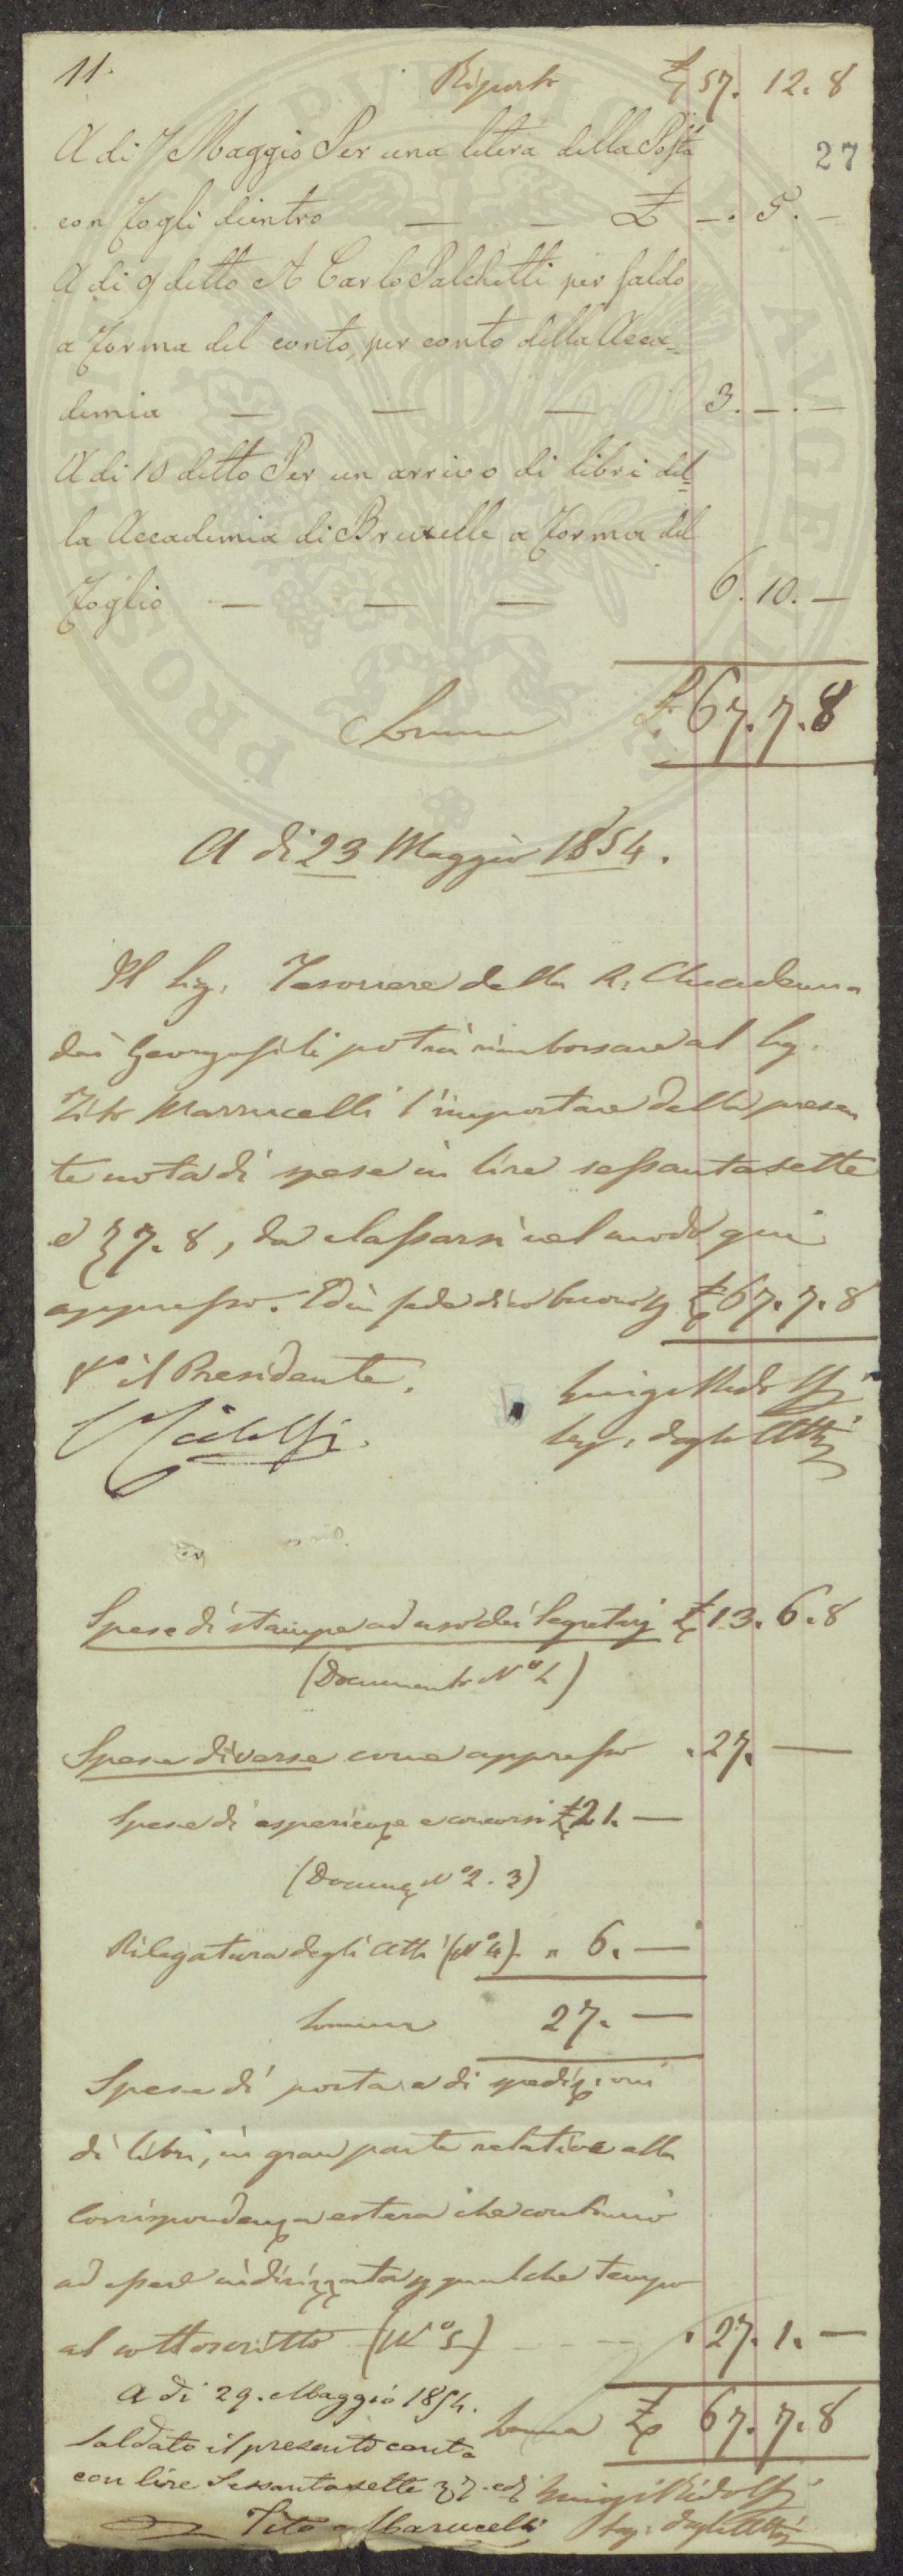 11. Riporto £ 57. 12. 8
27
A di 7 Maggio Per una letera della Posta
con fogli dientro — — £ —. 5. —
A di 9 detto A Carlo Palchetti per saldo
a forma del conto, per conto della Acca=
demia — — — 3. —. —
A di 10 detto Per un arrivo di libri del=
la Accademia di Bruxelle a forma del
foglio — — — 6. 10. —
Somma £ 67. 7. 8
A di 23 Maggio 1854.
Il Sig. Tesoriere della R. Accademia
dei Georgofili potrà rimborsare al Sig.
Tito Marrucelli l'importare della presen
te nota di spese in lire sessantasette
e 7. 8, da classarsi nel modo qui
appresso. Ed in fede dico buono p £ 67. 7. 8
Vo il Presidente. Luigi Ridolfi
CRidolfi. Seg. degli Atti
Spese di stampe ad uso dei Segretarj £ 13. 6. 8
(Documento No 1)
Spese diverse come appresso . 27. —
Spese di esperienze e concorsi £ 21. —
(Docum. No 2. 3)
Rilegatura degli Atti (No 4). „ 6. —
Somma 27. —
Spese di posta e di spedizioni
di libri, in gran parte relative alla
corrispondenza estera che continuò
ad essere indirizzata p qualche tempo
al sottoscritto (No 5) - - - . 27. 1. —
A di 29. Maggio 1854. Somma £ 67. 7. 8
Saldato il presente conto
con lire Sessantasette 7. e 8 Luigi Ridolfi
Tito Marucelli Seg. degli Atti